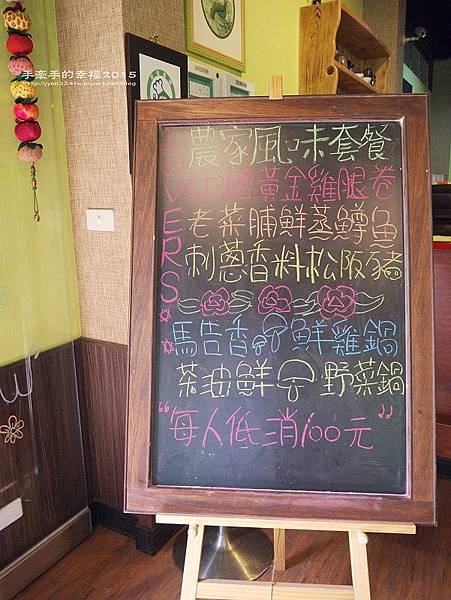 手牽手的幸福2015
農家風味套餐
紅糟黃金雞腿卷
老菜脯鮮蒸鱒魚
刺蔥香料松阪豬
馬告香 鮮雞鍋
茶油鮮 野菜鍋
"每人低消100元"